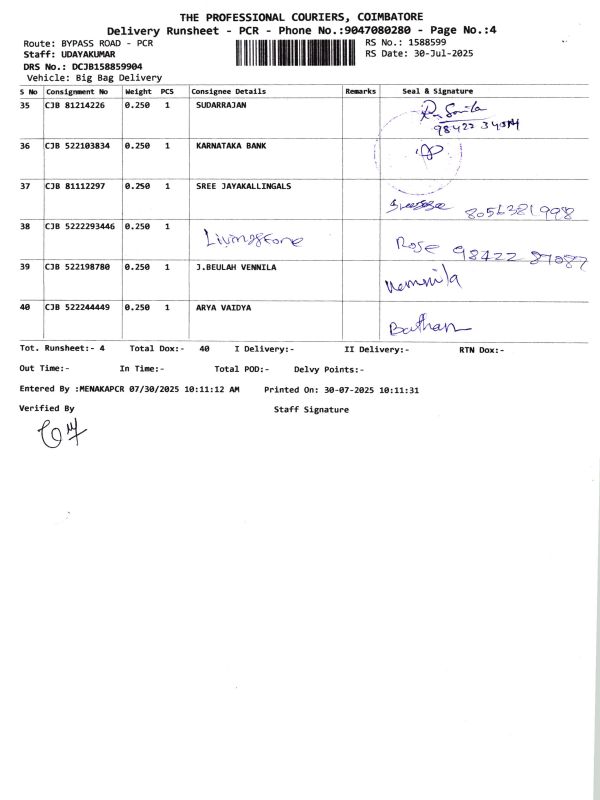 THE PROFESSIONAL COURIERS, COIMBATORE
Delivery Runsheet - PCR - Phone No.:9047080280 - Page No.:4
Route: BYPASS ROAD - PCR RS No.: 1588599
Staff: UDAYAKUMAR RS Date: 30-Jul-2025
DRS No.: DCJB158859904
Vehicle: Big Bag Delivery
S No Consignment No Weight PCS Consignee Details Remarks Seal & Signature
35 CJB 81214226 0.250 1 SUDARRAJAN
36 CJB 522103834 0.250 1 KARNATAKA BANK
37 CJB 81112297 0.250 1 SREE JAYAKALLINGALS
8056381998
38 CJB 5222293446 0.250 1 Livingstone Rose 98422 87087
39 CJB 522198780 0.250 1 J.BEULAH VENNILA Vennila
40 CJB 522244449 0.250 1 ARYA VAIDYA
Tot. Runsheet:- 4 Total Dox:- 40 I Delivery:- II Delivery:- RTN Dox:-
Out Time:- In Time:- Total POD:- Delvy Points:-
Entered By :MENAKAPCR 07/30/2025 10:11:12 AM Printed On: 30-07-2025 10:11:31
Verified By Staff Signature